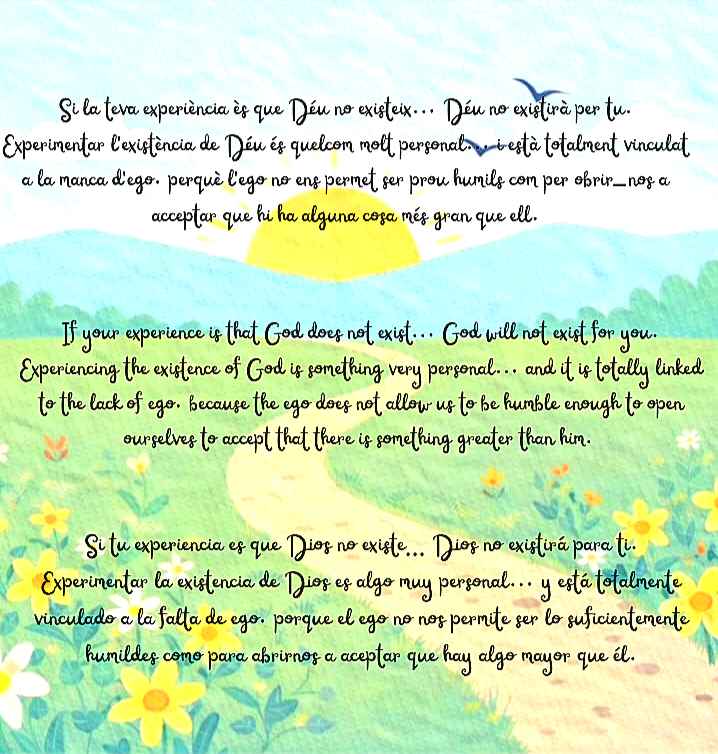 Si la teva experiència ès que Déu no existeix... Déu no existirà per tu.
Experimentar l'existència de Déu és quelcom molt personal... i està totalment vinculat
a la manca d'ego. perquè l'ego no ens permet ser prou humils com per obrir_nos a
acceptar que hi ha alguna cosa més gran que ell.
If your experience is that God does not exist... God will not exist for you.
Experiencing the existence of God is something very personal... and it is totally linked
to the lack of ego. because the ego does not allow us to be humble enough to open
ourselves to accept that there is something greater than him.
Si tu experiencia es que Dios no existe... Dios no existirá para ti.
Experimentar la existencia de Dios es algo muy personal... y está totalmente
vinculado a la falta de ego. porque el ego no nos permite ser lo suficientemente
humildes como para abrirnos a aceptar que hay algo mayor que él.